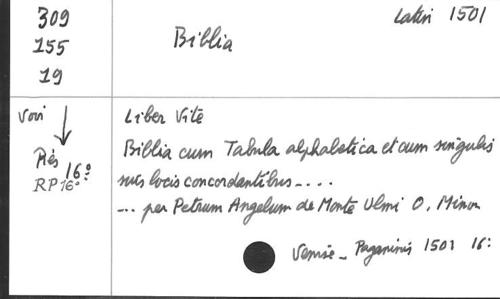 309
155
19
Biblia
Latin 1501
Voir
Rés 16º
RP 16º
Liber Vite
Biblia cum Tabula alphabetica et cum singulis
suis locis concordantibus - . . . .
. . . per Petrum Angelum de Monte Ulmi O. Minor
Venise - Paganinis 1501 16º